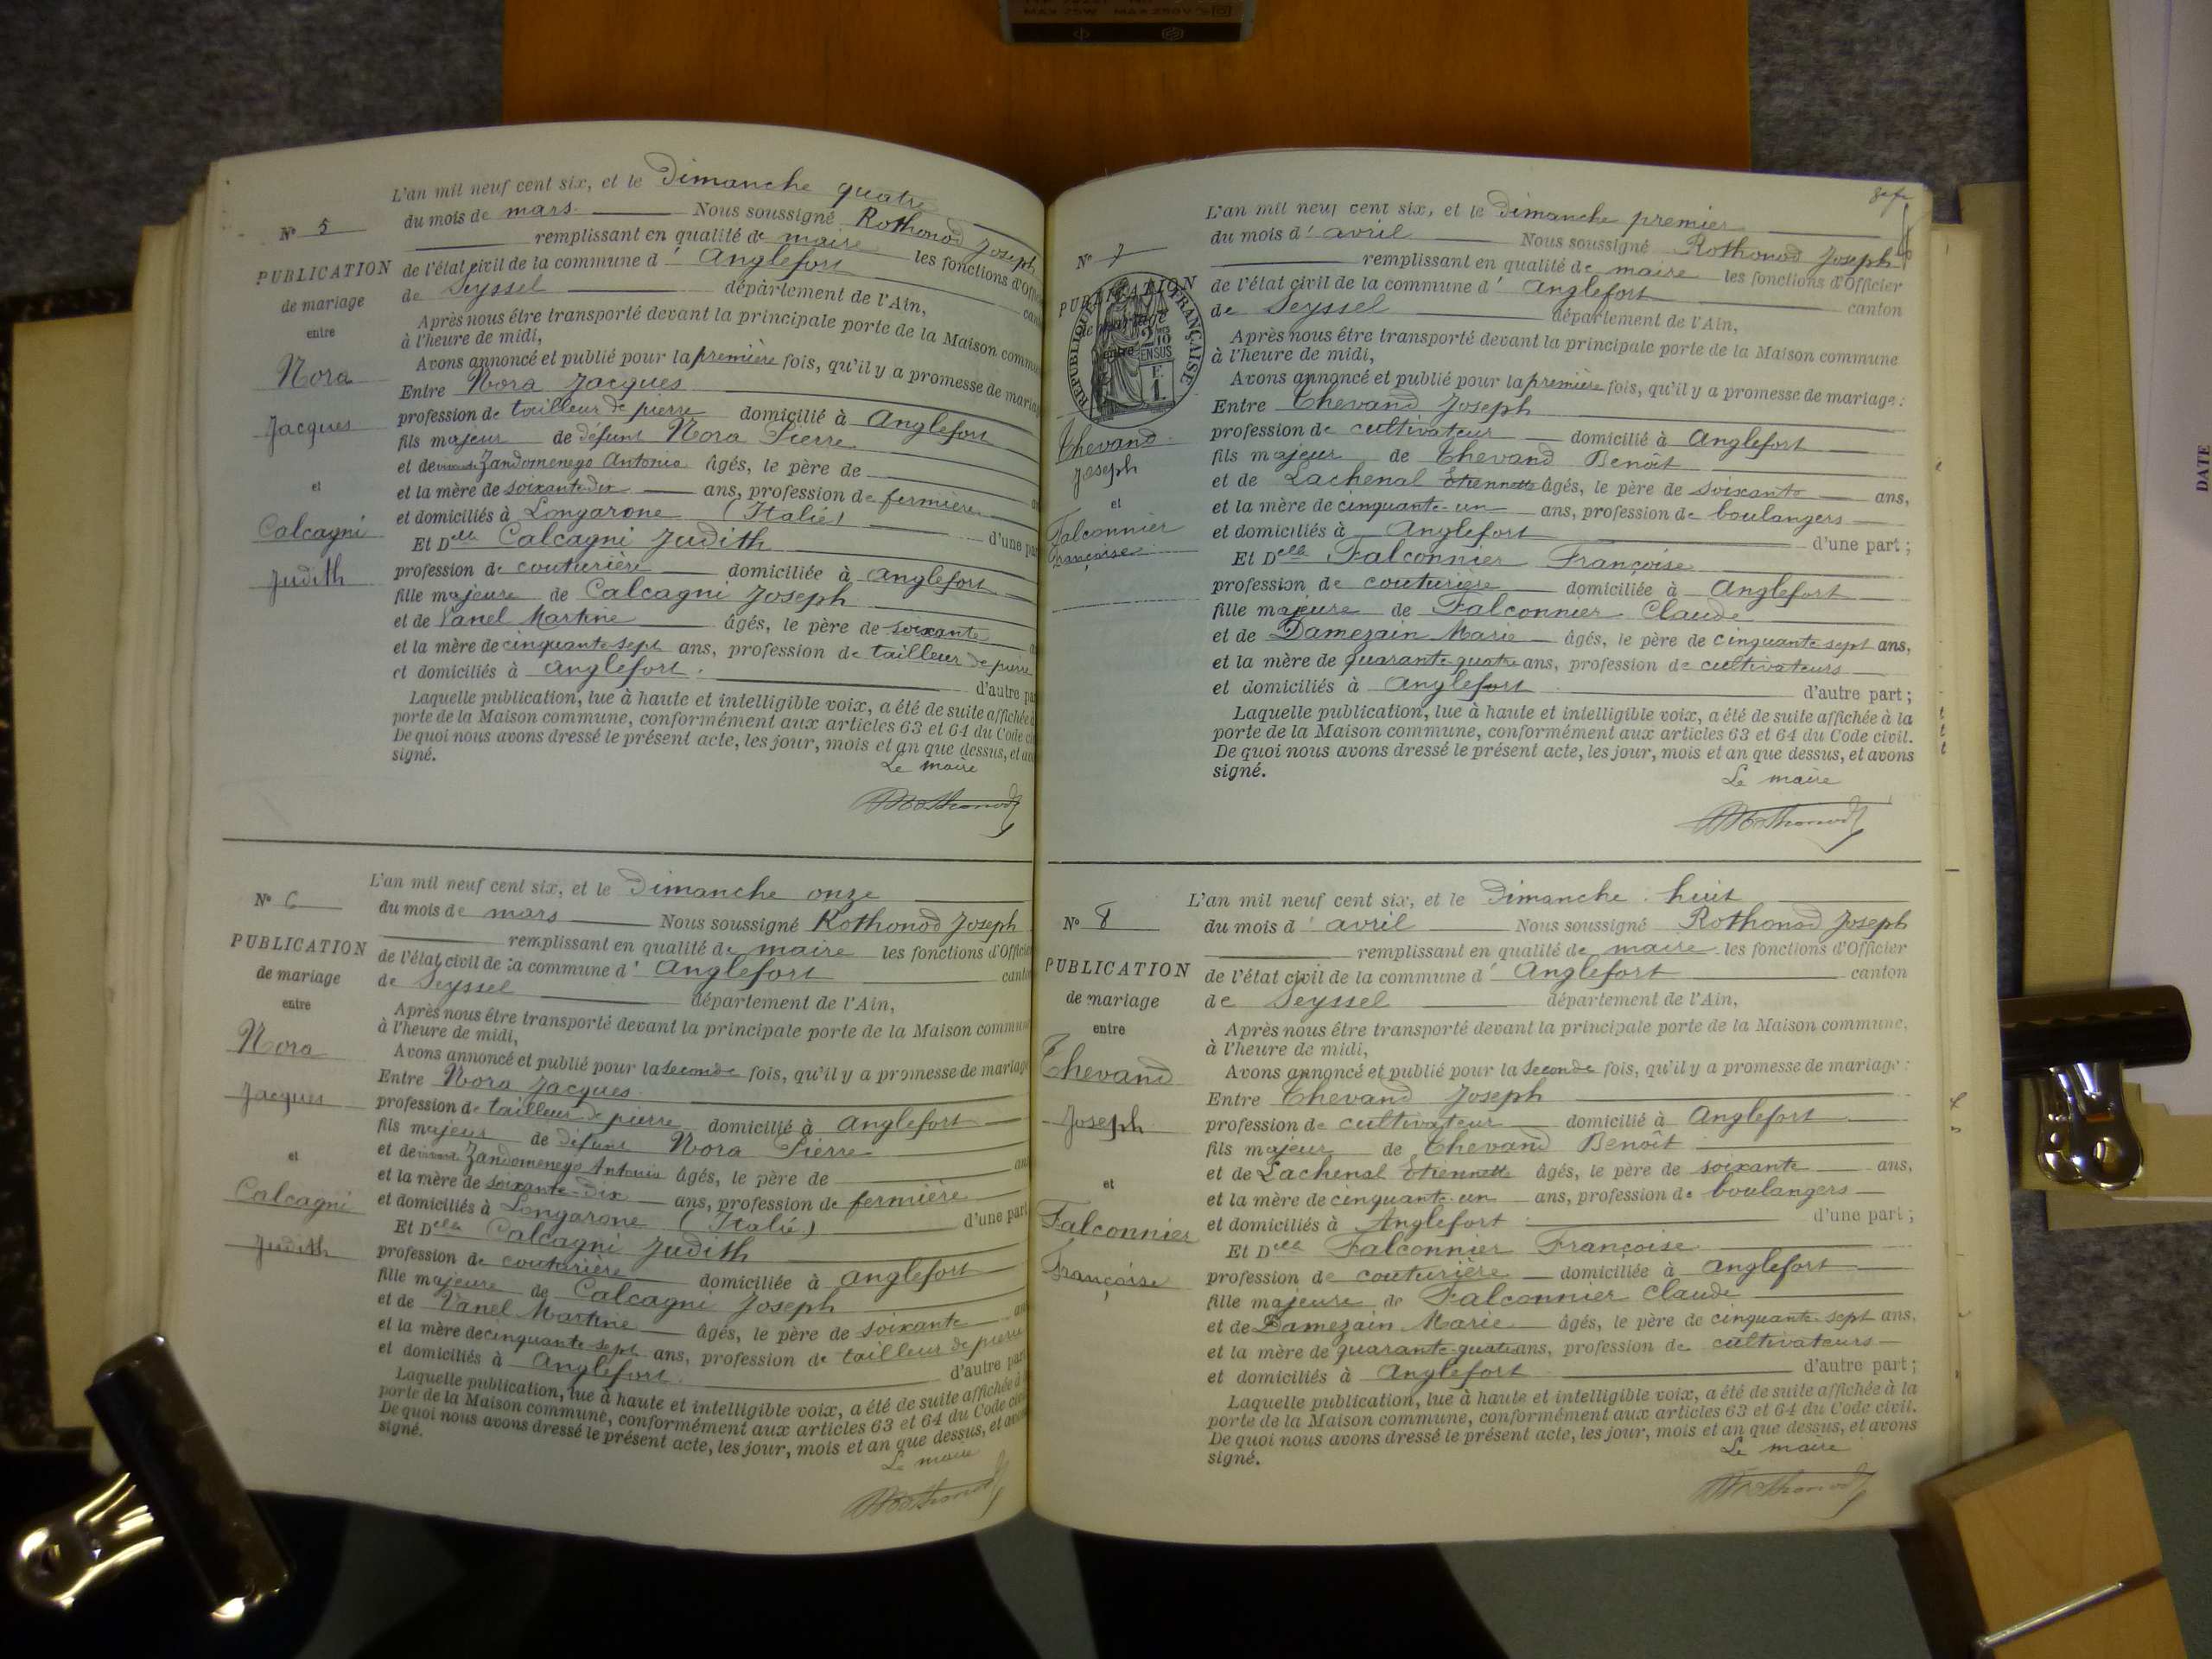 L'an mil neuf cent six, et le Dimanche quatre
Nº 5
du mois de mars Nous soussigné Rothonod Joseph
remplissant en qualité de maire les fonctions d'Offi
PUBLICATION
de mariage
entre
Nora
Jacques
et
Calcagni
Judith
de l'état civil de la commune d' Anglefort cant
de Seyssel département de l'Ain,
Après nous être transporté devant la principale porte de la Maison commu
à l'heure de midi,
Avons annoncé et publié pour la première fois, qu'il y a promesse de mariag
Entre Nora Jacques
profession de tailleur de pierre domicilié à Anglefort
fils majeur de défunt Nora Pierre
et de Zandomenego Antonia âgés, le père de
et la mère de soixante dix ans, profession de fermière
et domiciliés à Longarone (Italie) d'une pa
Et Delle Calcagni Judith
profession de couturière domiciliée à Anglefort
fille majeure de Calcagni Joseph
et de Vanel Martine âgés, le père de soixante
et la mère de cinquante sept ans, profession de tailleur de pierre
et domiciliés à Anglefort. d'autre pa
Laquelle publication, lue à haute et intelligible voix, a été de suite affichée à
porte de la Maison commune, conformément aux articles 63 et 64 du Code ci
De quoi nous avons dressé le présent acte, les jour, mois et an que dessus, et av
signé.
Le maire
Rothonod
L'an mil neuf cent six, et le Dimanche onze
Nº 6
du mois de mars Nous soussigné Rothonod Joseph
remplissant en qualité de maire les fonctions d'Offici
PUBLICATION
de mariage
entre
Nora
Jacques
et
Calcagni
Judith
de l'état civil de la commune d' Anglefort canto
de Seyssel département de l'Ain,
Après nous être transporté devant la principale porte de la Maison commun
à l'heure de midi,
Avons annoncé et publié pour la seconde fois, qu'il y a promesse de mariage
Entre Nora Jacques
profession de tailleur de pierre domicilié à Anglefort
fils majeur de défunt Nora Pierre
et de Zandomenego Antonia âgés, le père de an
et la mère de soixante-dix ans, profession de fermière
et domiciliés à Longarone (Italie) d'une part
Et Delle Calcagni Judith
profession de couturière domiciliée à Anglefort
fille majeure de Calcagni Joseph
et de Vanel Martine âgés, le père de soixante an
et la mère de cinquante sept ans, profession de tailleur de pierre
et domiciliés à Anglefort. d'autre part
Laquelle publication, lue à haute et intelligible voix, a été de suite affichée à
porte de la Maison commune, conformément aux articles 63 et 64 du Code civ
De quoi nous avons dressé le présent acte, les jour, mois et an que dessus, et avon
signé.
Le maire
Rothonod
L'an mil neuf cent six, et le Dimanche premier
Nº 7
du mois d' avril Nous soussigné Rothonod Joseph
remplissant en qualité de maire les fonctions d'Officier
PUBLICATION
de mariage
entre
RÉPUBLIQUE FRANÇAISE
2/10 EN SUS
F. 1.
Thevand
Joseph
et
Falconnier
Françoise
de l'état civil de la commune d' Anglefort canton
de Seyssel département de l'Ain,
Après nous être transporté devant la principale porte de la Maison commune
à l'heure de midi,
Avons annoncé et publié pour la première fois, qu'il y a promesse de mariage :
Entre Thevand Joseph
profession de cultivateur domicilié à Anglefort
fils majeur de Thevand Benoît
et de Lachenal Etiennette âgés, le père de soixante ans,
et la mère de cinquante-un ans, profession de boulangers
et domiciliés à Anglefort d'une part ;
Et Delle Falconnier Françoise
profession de couturière domiciliée à Anglefort
fille majeure de Falconnier Claude
et de Damezain Marie âgés, le père de cinquante sept ans,
et la mère de quarante-quatre ans, profession de cultivateurs
et domiciliés à Anglefort d'autre part ;
Laquelle publication, lue à haute et intelligible voix, a été de suite affichée à la
porte de la Maison commune, conformément aux articles 63 et 64 du Code civil.
De quoi nous avons dressé le présent acte, les jour, mois et an que dessus, et avons
signé.
Le maire
Rothonod
L'an mil neuf cent six, et le Dimanche huit
Nº 8
du mois d' avril Nous soussigné Rothonod Joseph
remplissant en qualité de maire les fonctions d'Officier
PUBLICATION
de mariage
entre
Thevand
Joseph
et
Falconnier
Françoise
de l'état civil de la commune d' Anglefort canton
de Seyssel département de l'Ain,
Après nous être transporté devant la principale porte de la Maison commune,
à l'heure de midi,
Avons annoncé et publié pour la seconde fois, qu'il y a promesse de mariage :
Entre Thevand Joseph
profession de cultivateur domicilié à Anglefort
fils majeur de Thevand Benoît
et de Lachenal Etiennette âgés, le père de soixante ans,
et la mère de cinquante-un ans, profession de boulangers
et domiciliés à Anglefort d'une part ;
Et Delle Falconnier Françoise
profession de couturière domiciliée à Anglefort
fille majeure de Falconnier Claude
et de Damezain Marie âgés, le père de cinquante-sept ans,
et la mère de quarante-quatre ans, profession de cultivateurs
et domiciliés à Anglefort d'autre part ;
Laquelle publication, lue à haute et intelligible voix, a été de suite affichée à la
porte de la Maison commune, conformément aux articles 63 et 64 du Code civil.
De quoi nous avons dressé le présent acte, les jour, mois et an que dessus, et avons
signé.
Le maire
Rothonod
DATE